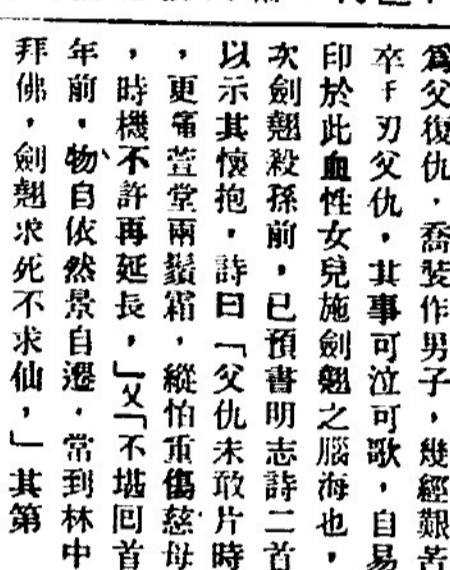 爲父復仇，喬裝作男子，幾經艱苦
卒手刃父仇，其事可泣可歌，自易
印於此血性女兒施劍翹之腦海也，
次劍翹殺孫前，已預書明志詩二首
以示其懷抱，詩曰「父仇未敢片時
，更痛萱堂兩鬢霜，縱怕重傷慈母
，時機不許再延長，」又「不堪回首
年前，物自依然景自遷，常到林中
拜佛，劍翹求死不求仙，」其第